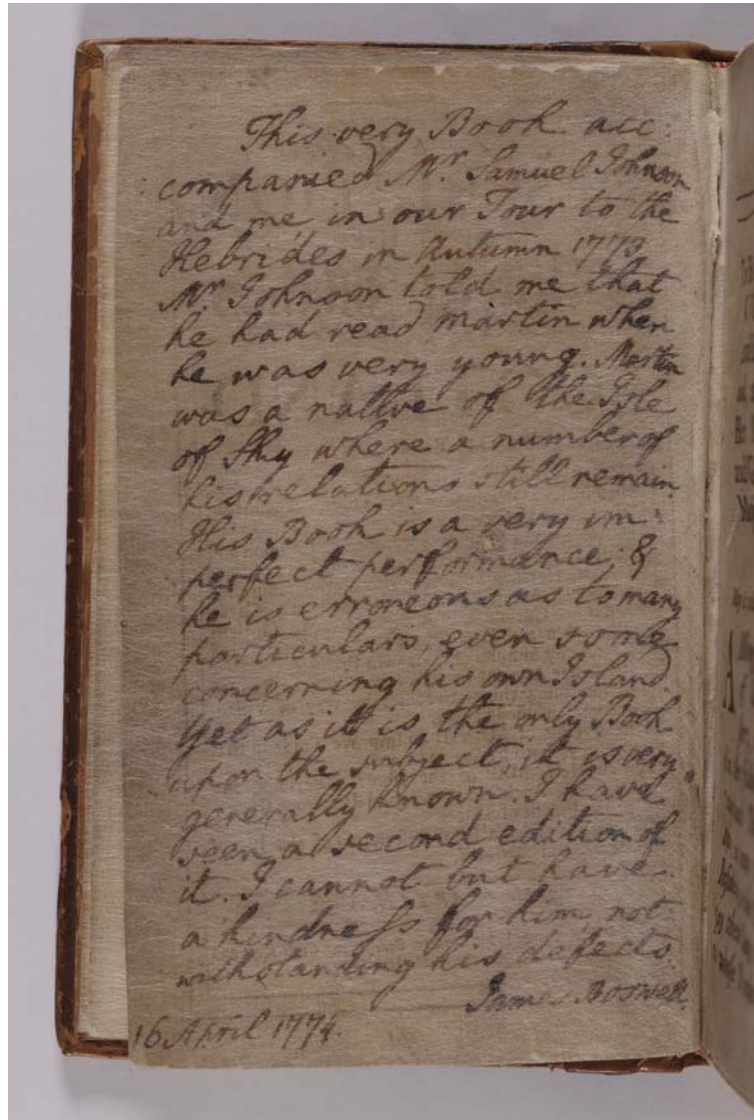 This very Book acc:
:companied Mr. Samuel Johnson
and me, in our Tour to the
Hebrides in Autumn 1773.
Mr. Johnson told me that
he had read Martin when
he was very young. Martin
was a native of the Isle
of Sky where a number of
his relations still remain.
His Book is a very im:
perfect performance; &
he is erroneous as to many
particulars, even some
concerning his own Island.
Yet as it is the only Book
upon the subject, it is very
generally known. I have
seen a second edition of
it. I cannot but have
a kindness for him, not:
withstanding his defects.
James Boswell.
16 April 1774.